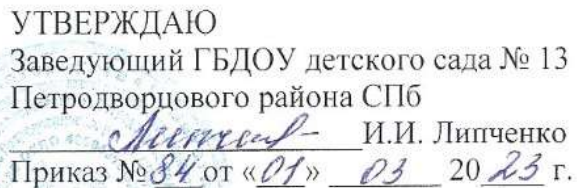 УТВЕРЖДАЮ
Заведующий ГБДОУ детского сада № 13
Петродворцового района СПб
И.И. Липченко
Приказ № 84 от «01» 03 20 23 г.